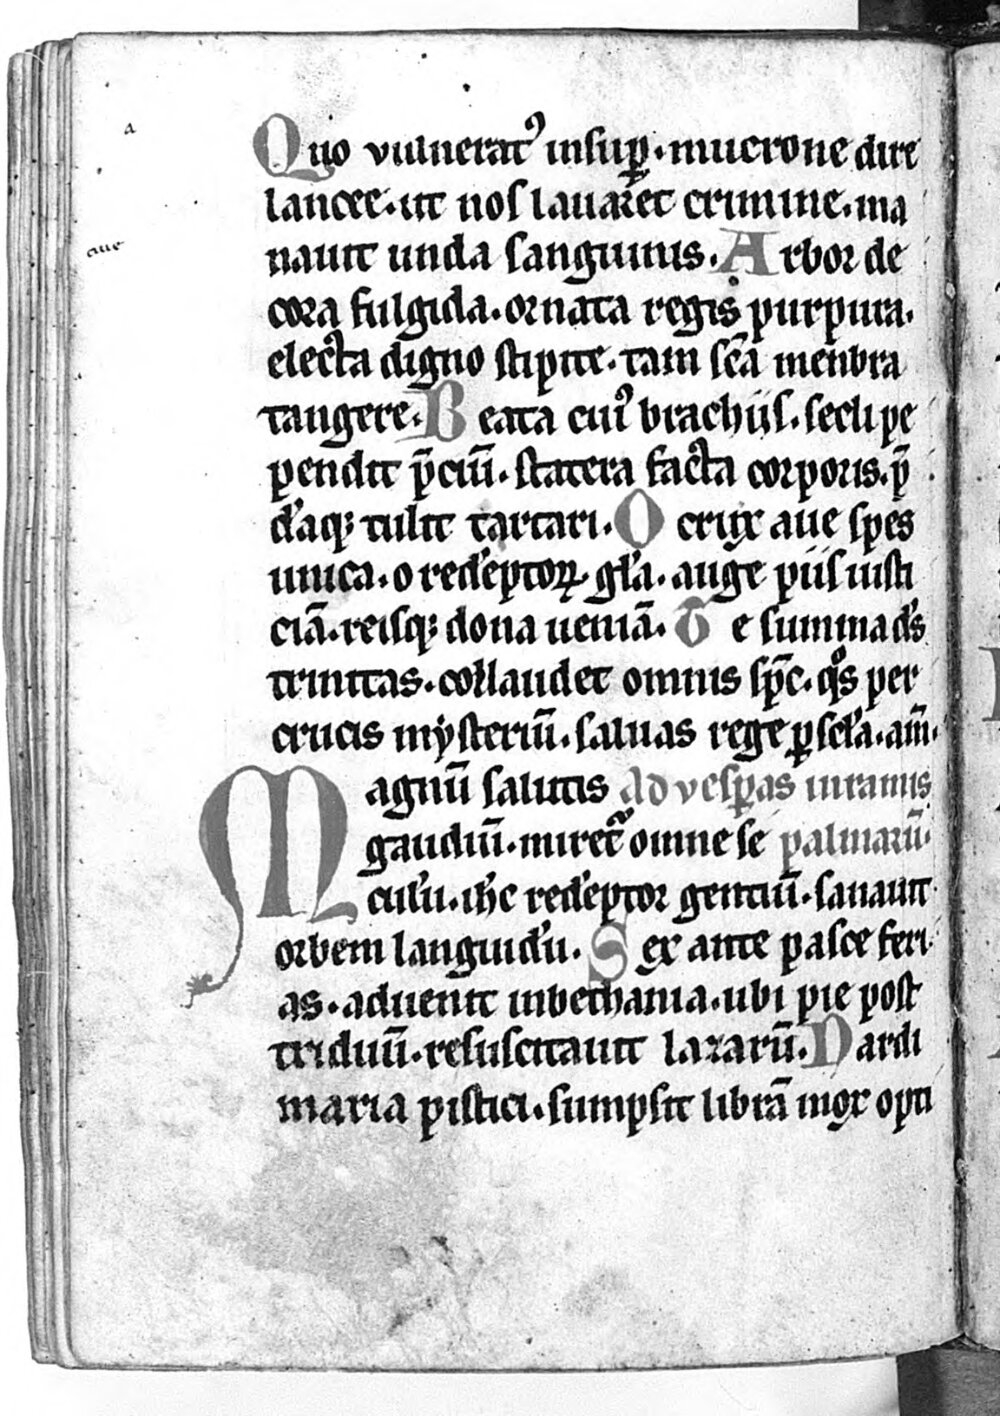 a
Quo vulneratꝰ insuꝑ · mucrone dire
lancee · ut nos lauaret crimine · ma
aue
nauit unda sanguinis · Arbor de
cora fulgida · ornata regis purpura ·
electa digno stipite · tam sc̄a menbra
tangere · Beata cuiꝰ brachijs · secli pe
pendit p̄ciū · statera facta corporis · p̄
d'aqꝫ tulit tartari · O crux aue spes
unica · o red'eptoꝝ gl'a · auge piis iusti
ciā · reisqꝫ dona ueniā · Te summa d's
trinitas · collaudet omnis sp̄c · qͦs per
crucis mysteriū · saluas rege ꝑ sc'la · am̄ ·
Magnū salutis Ad vesꝑas in ramis
gaudiū · miretᷣ omne se palmarū ·
cul'u · ih̄c red'eptor gentiū · sanauit
orbem languid'u · Sex ante pasce feri
as · aduenit inbethania · ubi pie post
triduū · resuscitauit lazarū · Nardi
maria pistici · sumpsit librā mox opti